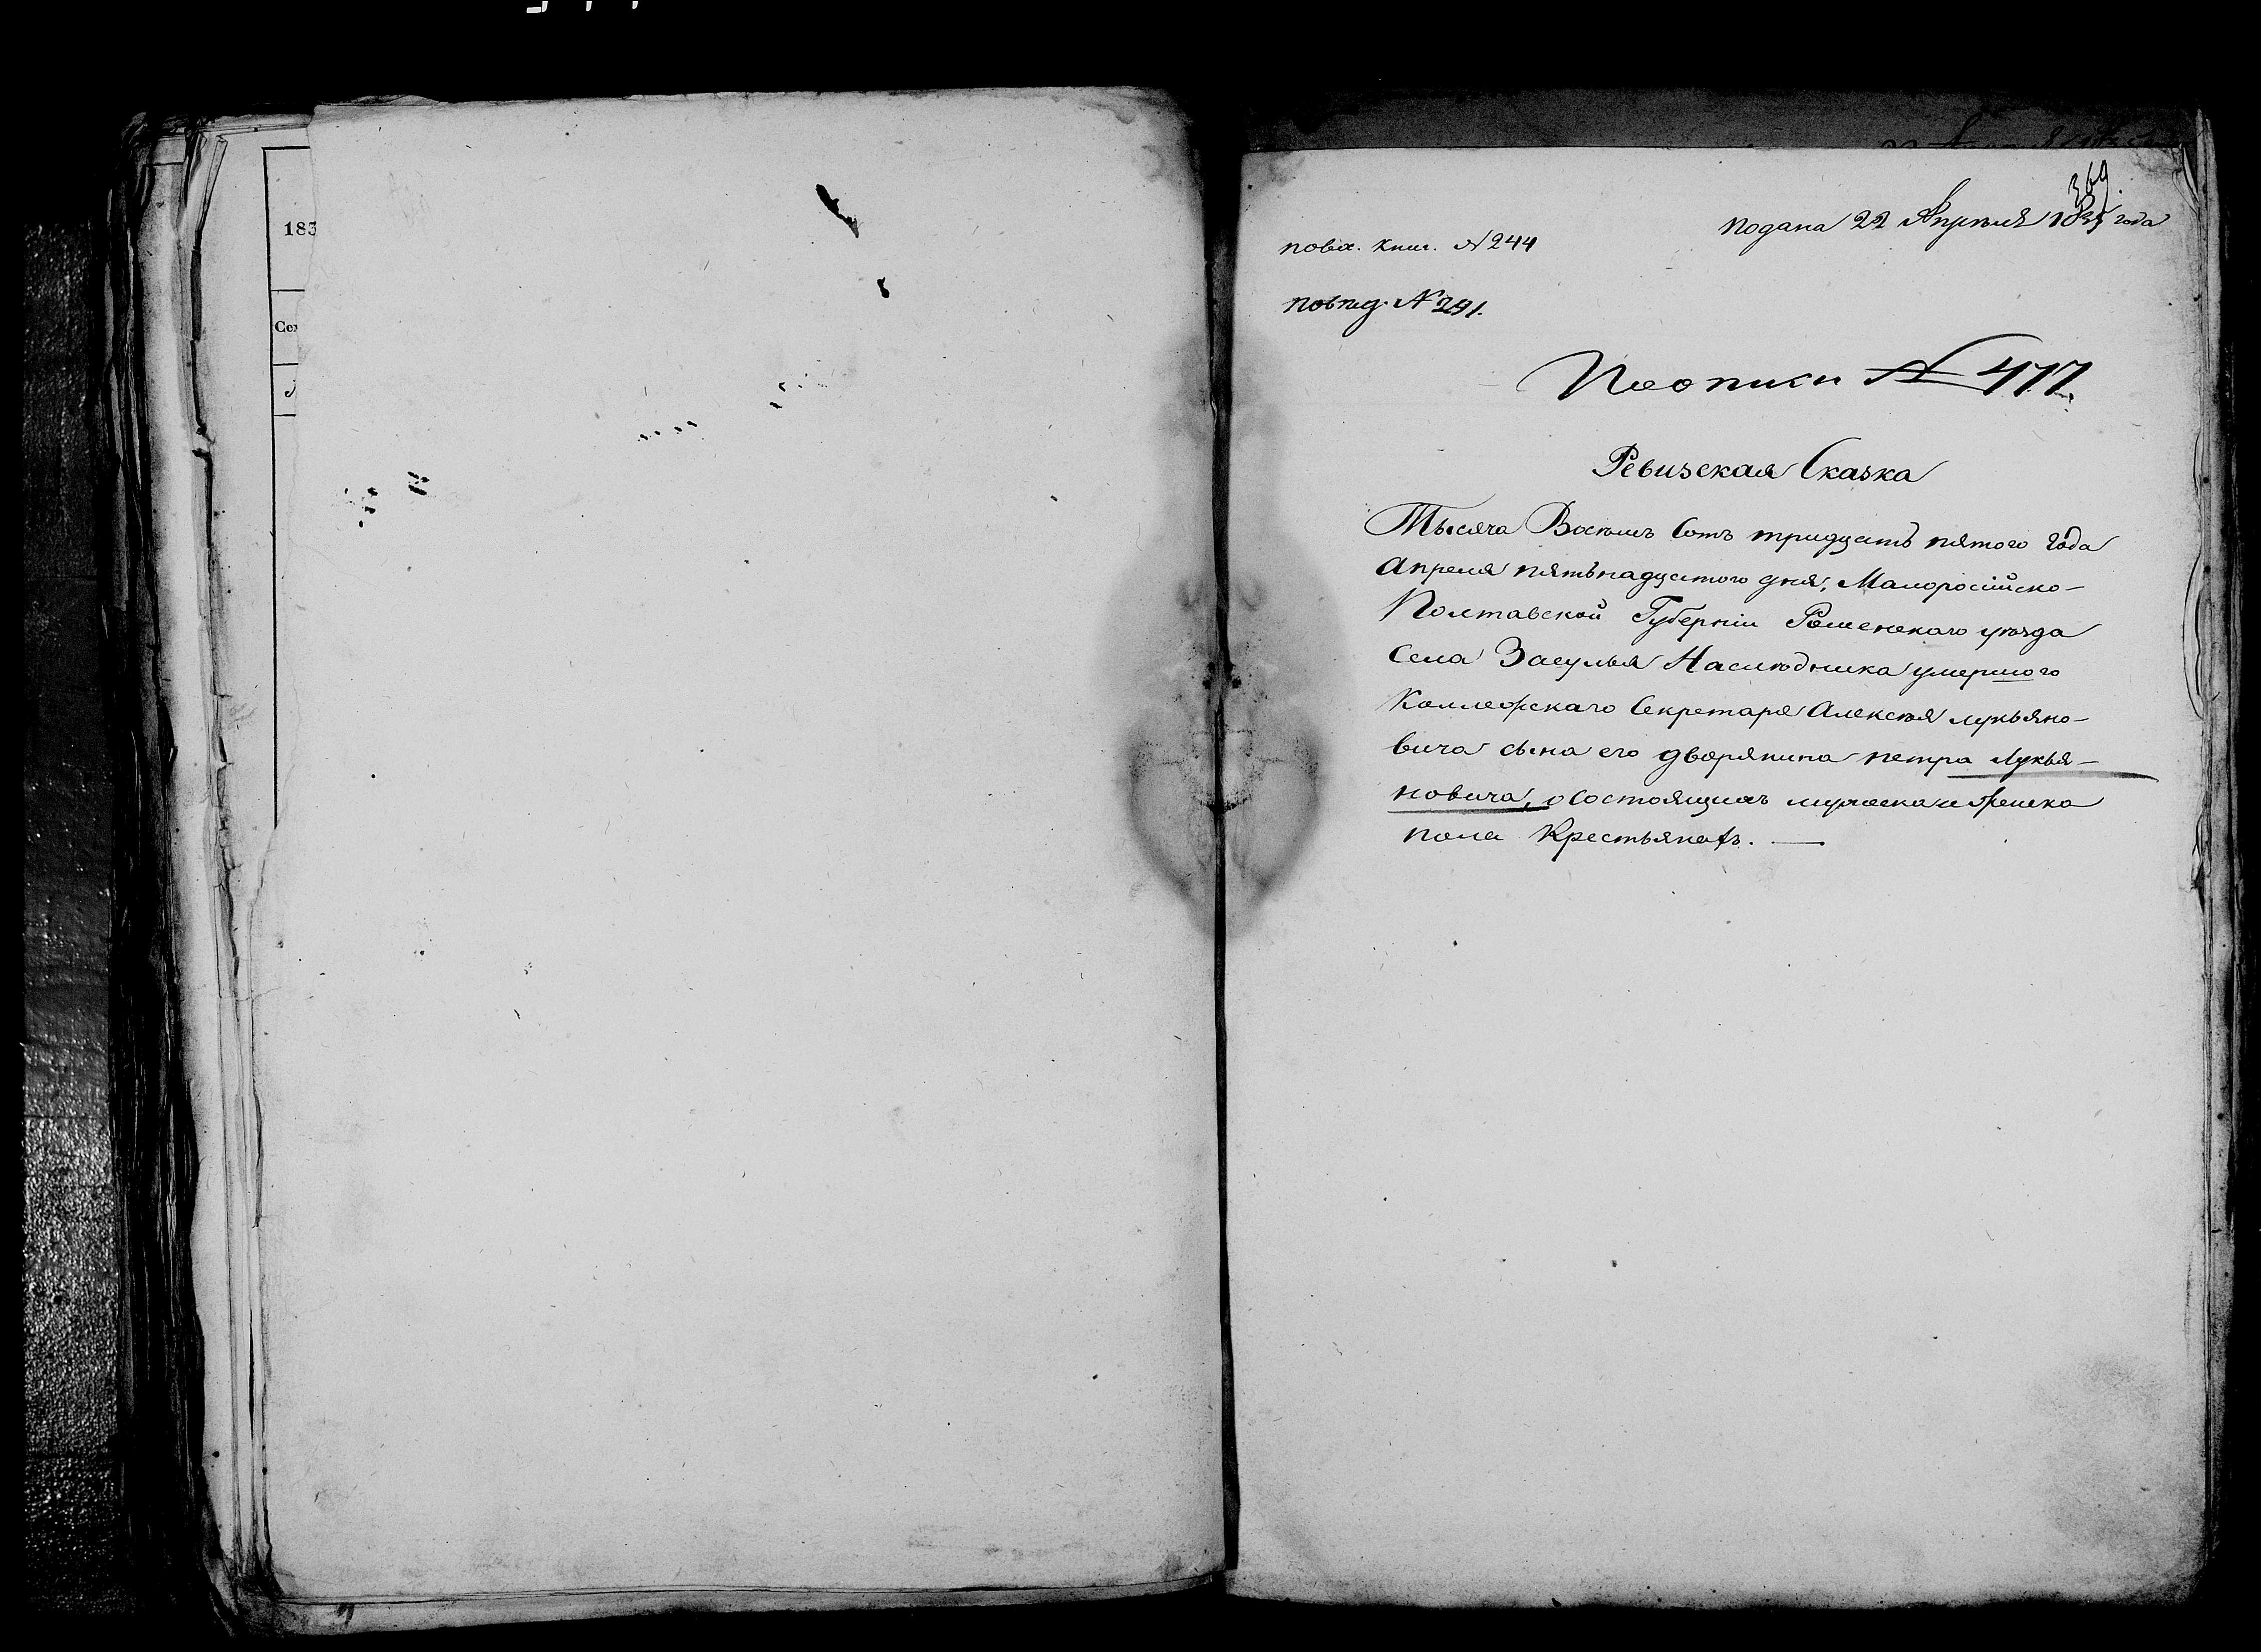 183
369.
подана 22 Апреля 1835 года
повх. книг. №244
по опики № 417.
Ревизская Сказка
Тысяча Восемь Сотъ тридцать пятого года
апреля пятьнадцятого дня, Малоросійско-
Полтавской Губерніи Роменскаго уѣзда
Села Засулья Наслѣдника умершого
Коллежскаго Секретаря Алексѣя лукьяно-
вича сына его дворянина петра Лукья-
новича, о Состоящихъ мужеска и женска
пола Крестьянахъ. —